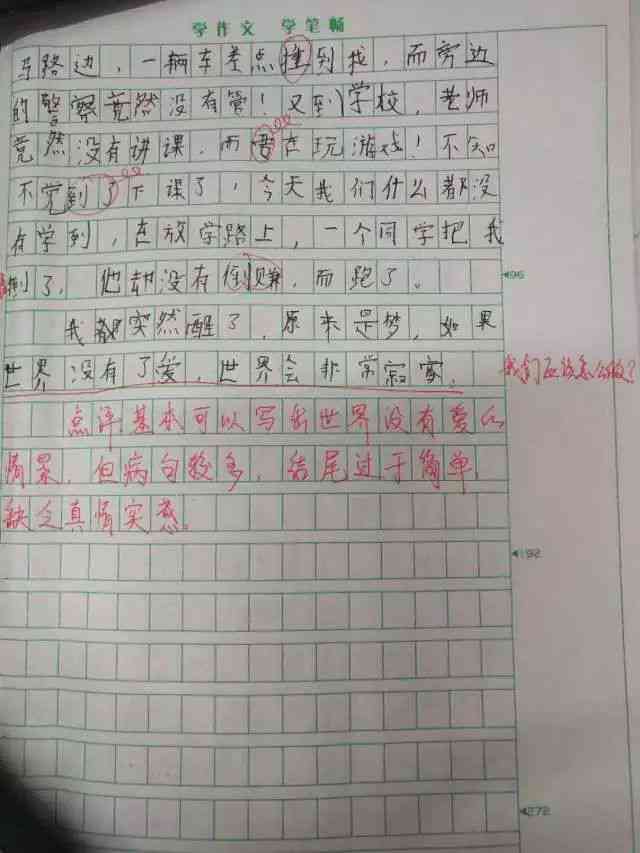 学作文 学笔畅
马路边，一辆车差点撞到我，而旁边
的警察竟然没有管！又到学校，老师
竟然没有讲课，而是在玩游戏！不知
不觉到了下课了，今天我们什么都没
有学到，在放学路上，一个同学把我
到了，他却没有倒赚，而跑了。
◀96
我都突然醒了，原来是梦，如果
世界没有了爱，世界会非常寂寞。
我们应该怎么做？
点评基本可以写出世界没有爱的
情景，但病句较多，结尾过于简单，
缺乏真情实感。
◀192
◀272